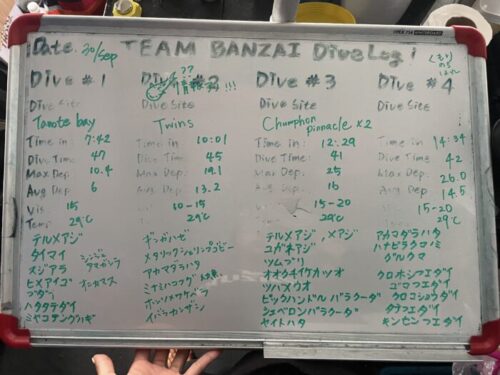 Date: 30/sep TEAM BANZAI Dive Log!
Dive #1
Dive Site
Tanote bay
Time in: 7:42
Dive Time: 47
Max Dep: 10.4
Avg Dep: 6
Vis: 15
Temp: 29℃
テルメアジ
タイマイ
スジアラ
ヒメアイゴ
ハタタテダイ
オニカマス
Dive #2
??
!!!
Dive Site
Twins
Time in: 10:01
Dive Time: 45
Max Dep: 19.1
Avg Dep: 13.2
10-15
29℃
ギンガハゼ
アカマダラハタ
ミヤミハコフグ
イバラカンザシ
Dive #3
Dive Site
Chumphon
pinnacle ×2
Time in: 12:29
Dive Time: 41
Max Dep: 25
Avg Dep: 16
15-20
29℃
テルメアジ, メアジ
ツムブリ
オオクチイケカツオ
ツバメウオ
ピックハンドル バラクーダ
シェベロンバラクーダ
ヤイトハタ
Dive #4
Dive Site
Time in: 14:34
Dive Time: 42
Max Dep: 26.0
Avg Dep: 14.5
15-20
29℃
アカマダラハタ
ハナビラクマノミ
グルクマ
クロホシフエダイ
ゴマフエダイ
クロコショウダイ
タテフエダイ
キンセンフエダイ